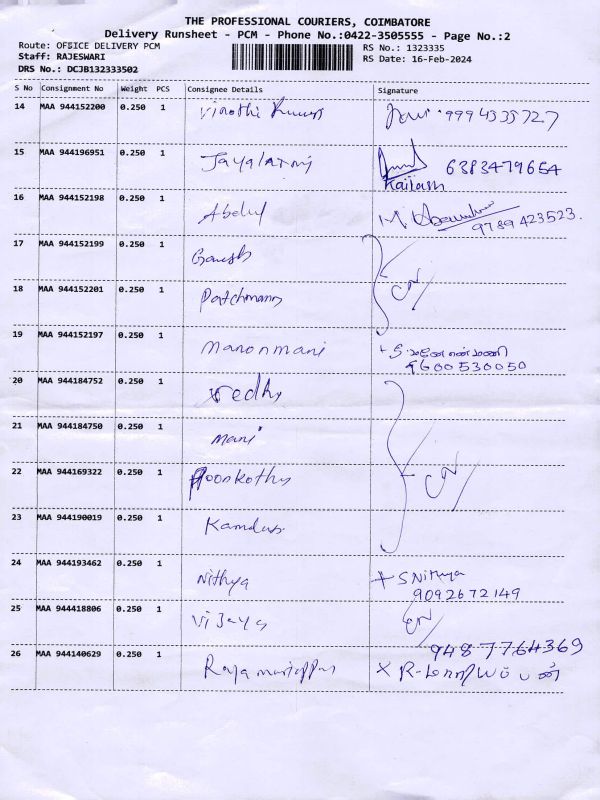 THE PROFESSIONAL COURIERS, COIMBATORE
Delivery Runsheet - PCM - Phone No.:0422-3505555 - Page No.:2
Route: OFFICE DELIVERY PCM
RS No.: 1323335
Staff: RAJESWARI
RS Date: 16-Feb-2024
DRS No.: DCJB132333502
S No Consignment No Weight PCS Consignee Details Signature
14 MAA 944152200 0.250 1 Vinothi Kumar 9994335727
15 MAA 944196951 0.250 1 Jayalaxmi 6383479654
Kailash
16 MAA 944152198 0.250 1 Abdul M.
9789423523.
17 MAA 944152199 0.250 1 Ganesh
18 MAA 944152201 0.250 1 Patchmann
19 MAA 944152197 0.250 1 Manonmani
9600530050
20 MAA 944184752 0.250 1
21 MAA 944184750 0.250 1 Mani
22 MAA 944169322 0.250 1 Poonkothy
23 MAA 944190019 0.250 1
24 MAA 944193462 0.250 1 Nithya S Nithya
9092672149
25 MAA 944418806 0.250 1 Vijaya
9487764369
26 MAA 944140629 0.250 1 Raja mariappan R-மாரியப்பன்